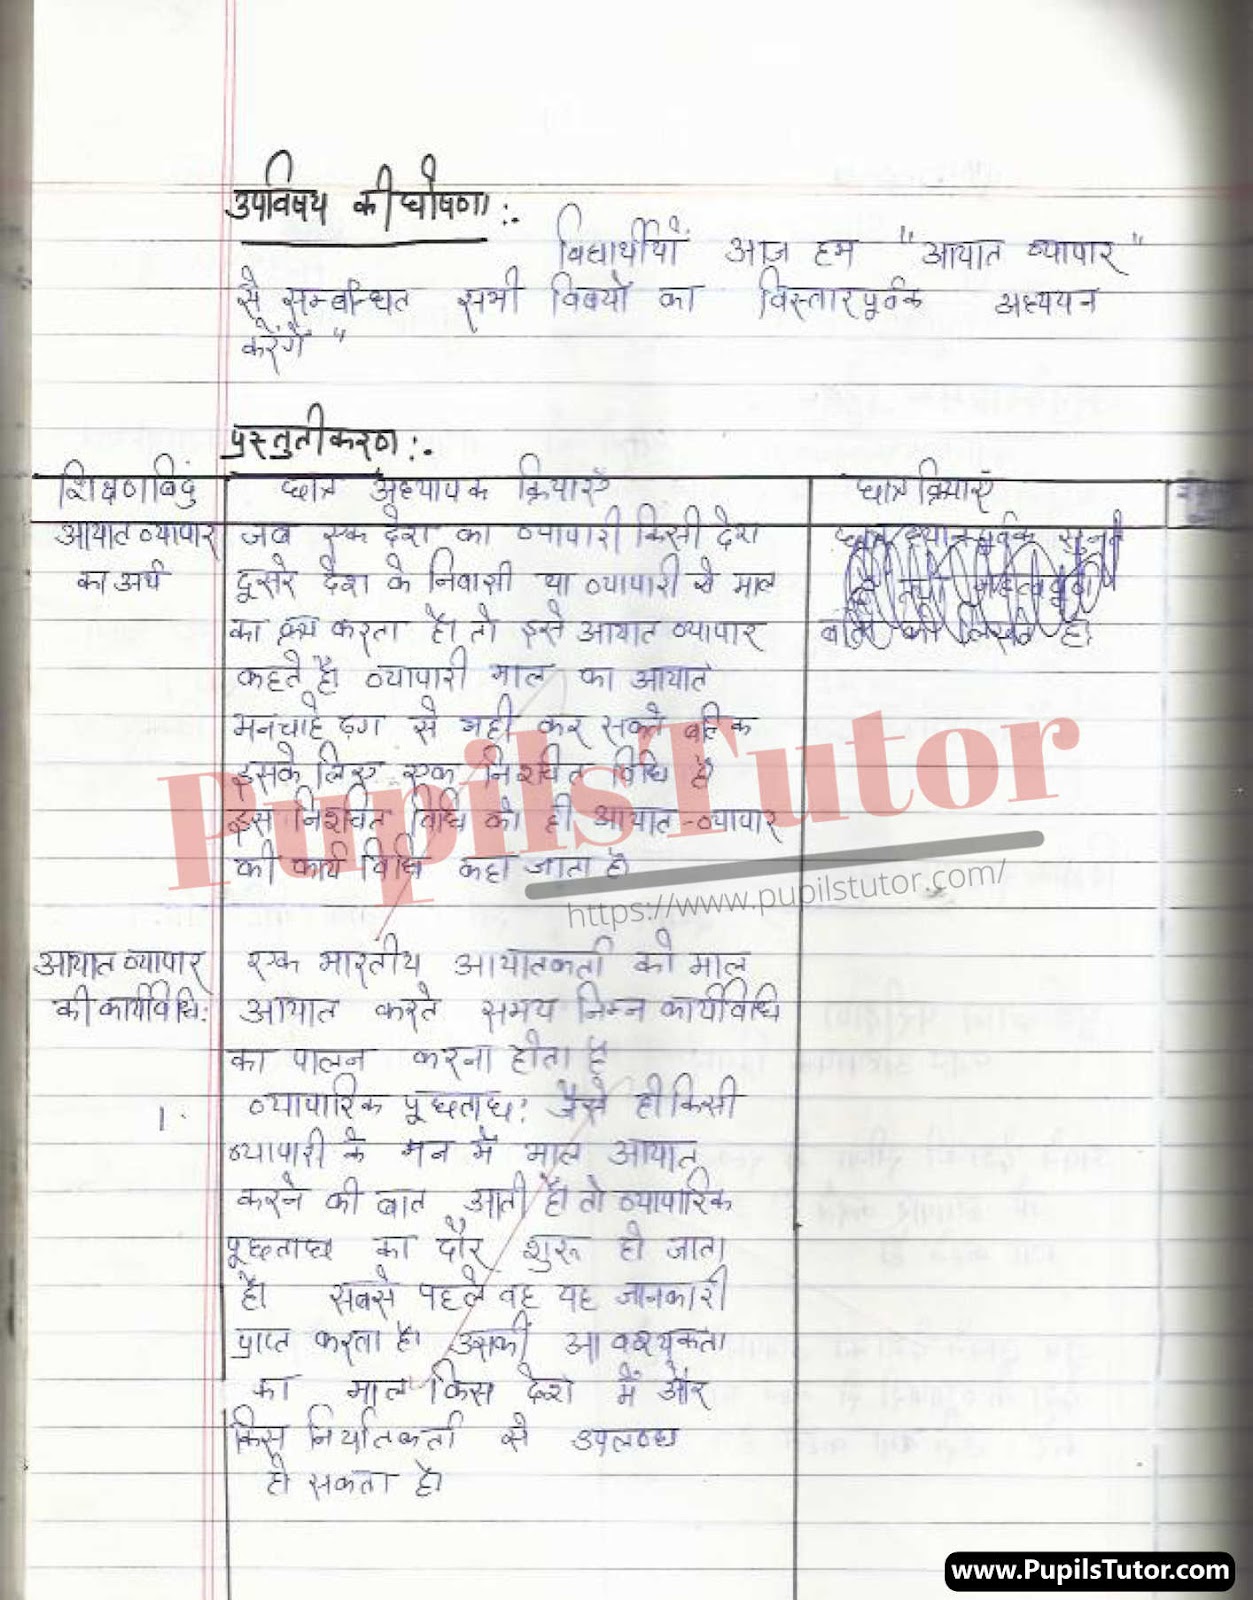 उपविषय की घोषणा :-
विद्यार्थीयों आज हम "आयात व्यापार"
से सम्बन्धित सभी विषयों का विस्तारपूर्वक अध्ययन
करेंगें"
प्रस्तुतीकरण :-
शिक्षणबिंदु छात्र अध्यापक क्रियाएँ छात्र क्रियाएँ
आयात व्यापार
का अर्थ
जब एक देश का व्यापारी किसी देश
दूसरे देश के निवासी या व्यापारी से माल
का क्रय करता है। तो इसे आयात व्यापार
कहते है। व्यापारी माल का आयात
मनचाहे ढ़ग से नही कर सकते बल्कि
इसके लिए एक निश्चित विधि है।
इस निश्चित विधि को ही आयात-व्यापार
की कार्य विधि कहा जाता है।
छात्र ध्यानपूर्वक सुनते
है तथा महत्वपूर्ण
बातों को लिखते है।
आयात व्यापार
की कार्यविधि:
एक भारतीय आयातकर्ता को माल
आयात करते समय निम्न कार्यविधि
का पालन करना होता है
1. व्यापारिक पूछताछ: जैसे ही किसी
व्यापारी के मन में माल आयात
करने की बात आती है। तो व्यापारिक
पूछताछ का दौर शुरू हो जाता
है। सबसे पहले वह यह जानकारी
प्राप्त करता है। उसकी आवश्यकता
का माल किस देश में और
किस निर्यातकर्ता से उपलब्ध
हो सकता है।
PupilsTutor
https://www.pupilstutor.com/
www.PupilsTutor.com